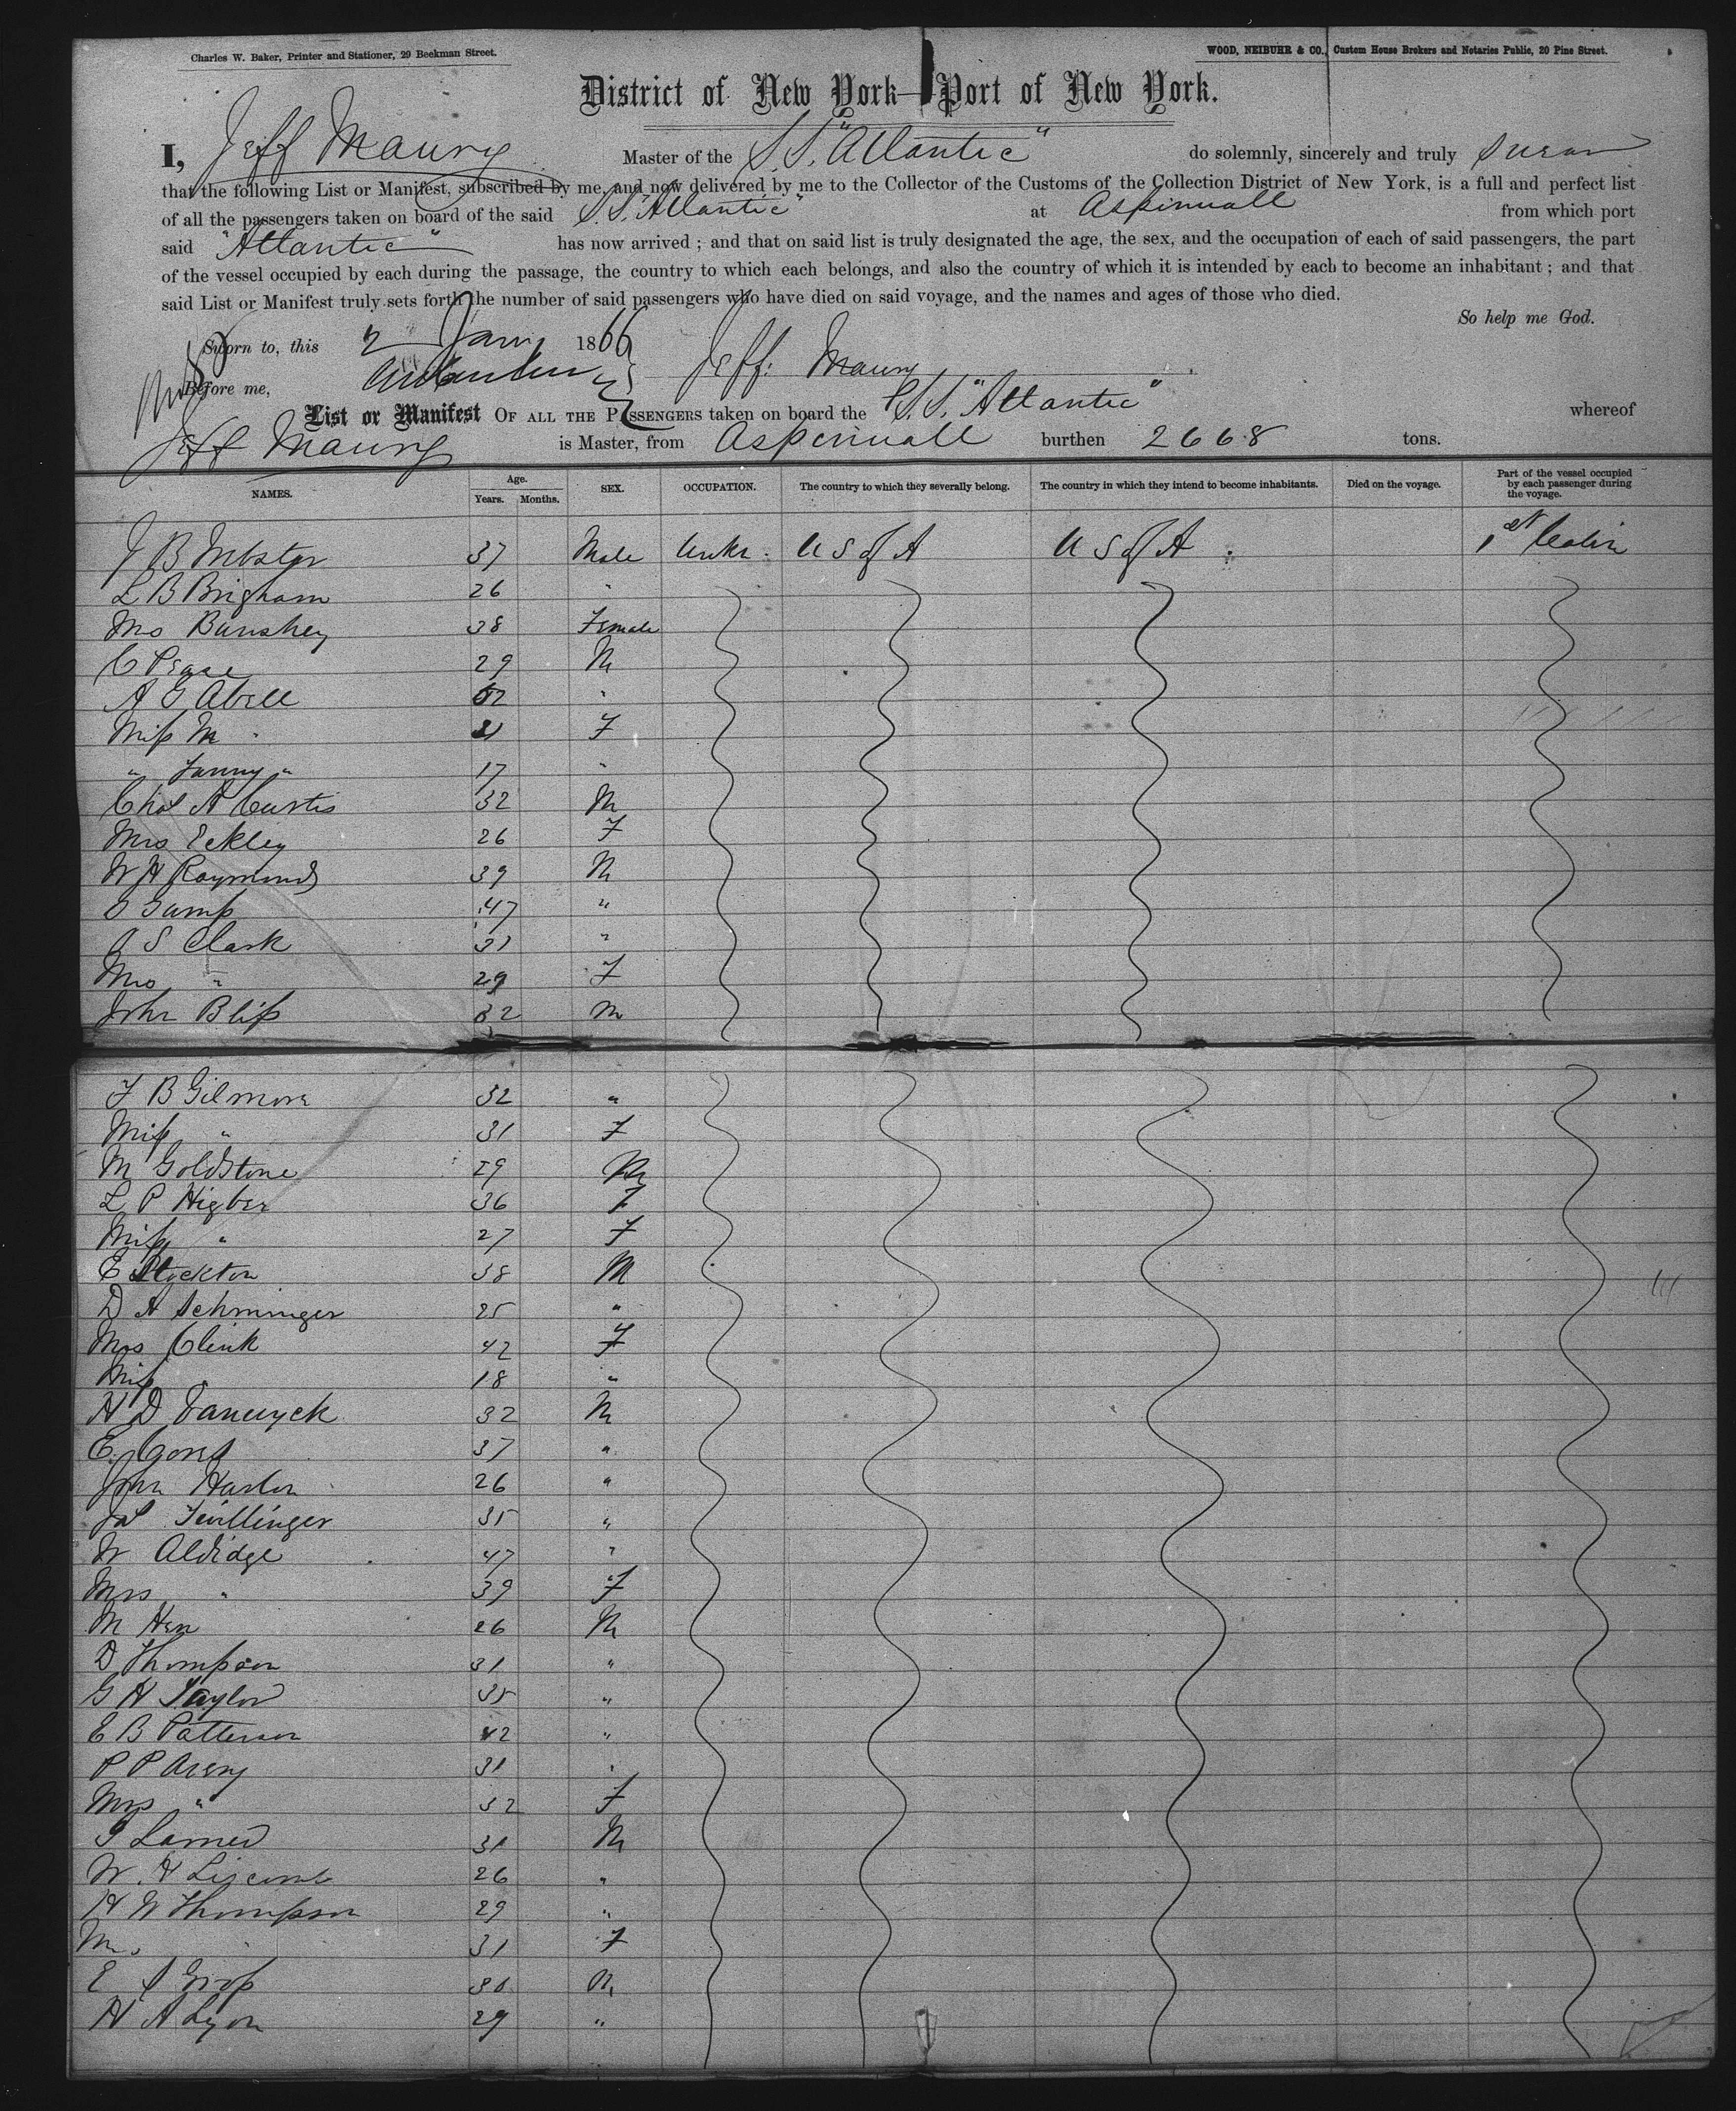 Charles W. Baker, Printer and Stationer, 29 Beekman Street.
WOOD, NEIBUHR & CO., Custom House Brokers and Notaries Public, 20 Pine Street.
District of New York—Port of New York.
I, Jeff Maury Master of the S.S. "Atlantic" do solemnly, sincerely and truly swear
that the following List or Manifest, subscribed by me, and now delivered by me to the Collector of the Customs of the Collection District of New York, is a full and perfect list
of all the passengers taken on board of the said S.S. "Atlantic" at Aspinwall from which port
said "Atlantic" has now arrived ; and that on said list is truly designated the age, the sex, and the occupation of each of said passengers, the part
of the vessel occupied by each during the passage, the country to which each belongs, and also the country of which it is intended by each to become an inhabitant ; and that
said List or Manifest truly sets forth the number of said passengers who have died on said voyage, and the names and ages of those who died.
So help me God.
Sworn to, this 2 Jany 1866 Jeff: Maury
Before me,
List or Manifest OF ALL THE PASSENGERS taken on board the S.S. "Atlantic" whereof
Jeff Maury is Master, from Aspinwall burthen 2668 tons.
NAMES. Age. Years. Months. SEX. OCCUPATION. The country to which they severally belong. The country in which they intend to become inhabitants. Died on the voyage. Part of the vessel occupied by each passenger during the voyage.
J B Webster 37 Male U S of A U S of A 1st Cabin
L B Brigham 26 "
Mrs Bunshey 38 Female
C Pease 29 M
A G Abell 52 "
Miss M " 21 F
" Fanny " 17 "
Chas A Curtis 32 M
Mrs Eckley 26 F
W H Raymond 39 M
G Gump 47 "
A S Clark 31 "
Mrs " 29 F
John Bliss 32 M
F B Gilmore 32 "
Miss " 31 F
M Goldstone 29 M
L P Higbee 36 F
Miss " 27 F
E Stockton 38 M
D A Schminger 25 "
Mrs Clink 42 F
Miss 18 "
H D Vanwyck 32 M
E. 37 "
John Harlon 26 "
Twillinger 35 "
W Aldidge 47 "
Mrs " 39 F
M Hen 26 M
D Thompson 31 "
G H Taylor 35 "
E B Patterson 42 "
P P Avery 31 "
Mrs " 32 F
Larned 31 M
W. H Liscomb 26 "
H W Thompson 29 "
Mrs 31 F
E S Gross 30 M
H A Lyon 29 "